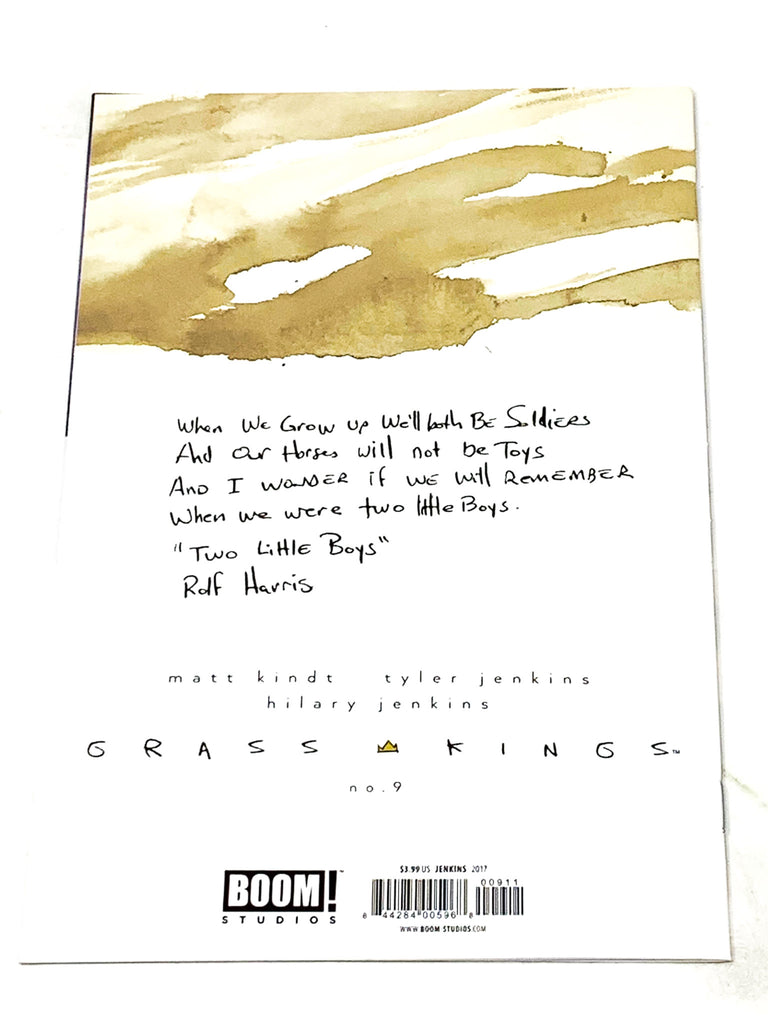 When We Grow up We'll both Be Soldiers
And Our Horses will not be Toys
And I wonder if we will Remember
When we were two little Boys.
"Two Little Boys"
Rolf Harris
matt kindt tyler jenkins
hilary jenkins
GRASS KINGS™
no.9
$3.99 US JENKINS 2017
BOOM!™
STUDIOS
00911
8 44284 00596 8
WWW.BOOM-STUDIOS.COM